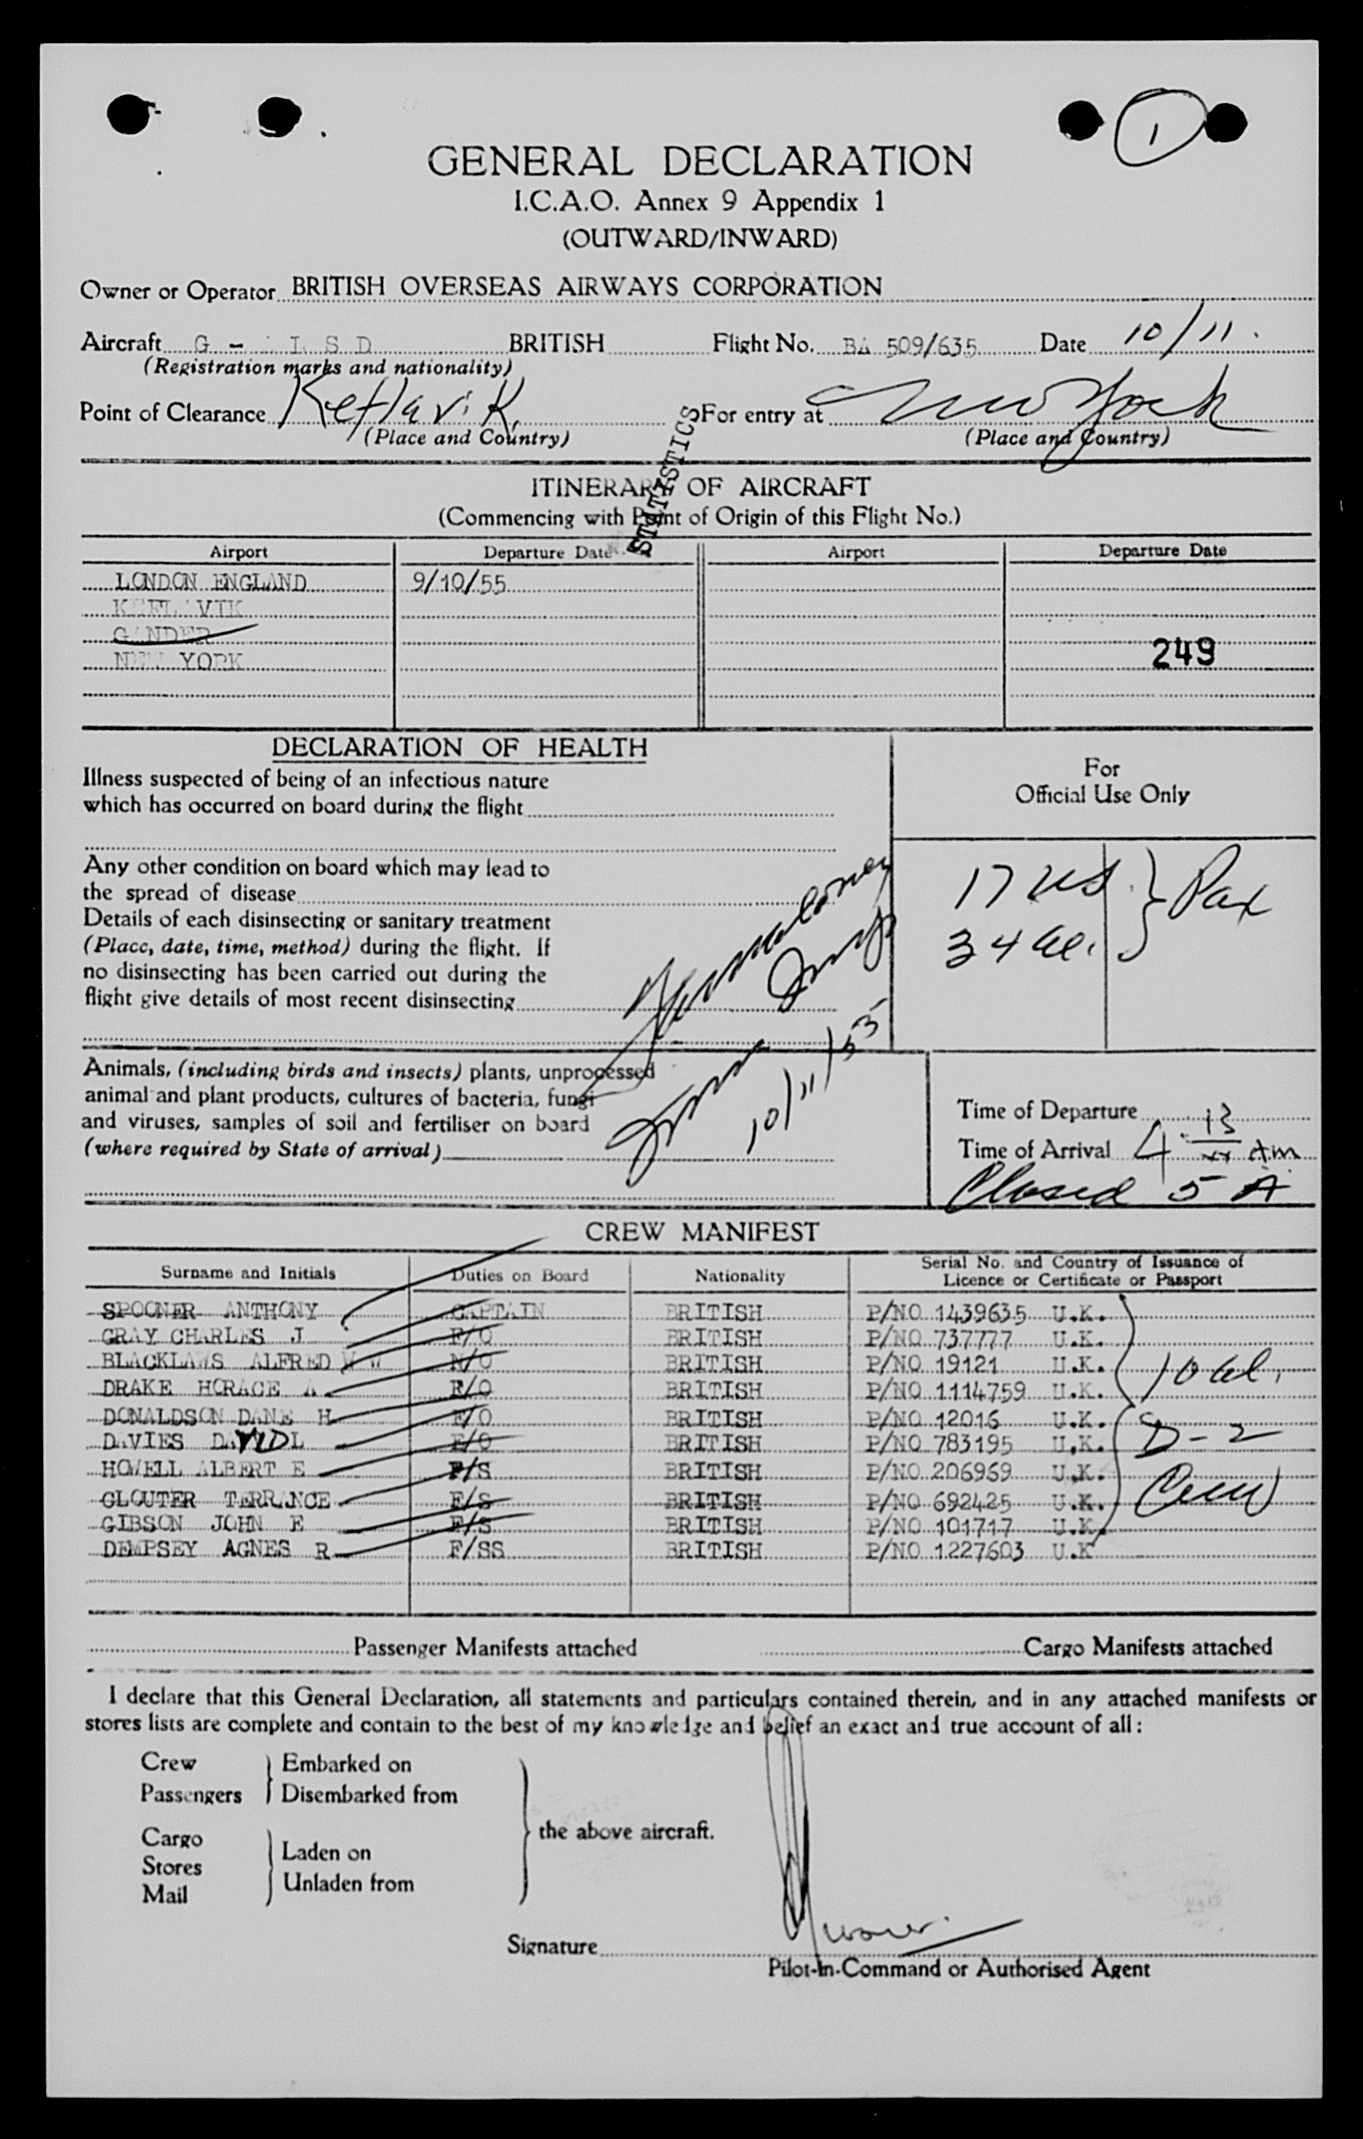 1
GENERAL DECLARATION
I.C.A.O. Annex 9 Appendix 1
(OUTWARD/INWARD)
Owner or Operator BRITISH OVERSEAS AIRWAYS CORPORATION
Aircraft G - L S D BRITISH Flight No. BA 509/635 Date 10/11.
(Registration marks and nationality)
Point of Clearance Keflavik For entry at New York
(Place and Country) (Place and Country)
STATISTICS
ITINERARY OF AIRCRAFT
(Commencing with Point of Origin of this Flight No.)
Airport Departure Date Airport Departure Date
LONDON ENGLAND 9/10/55
KEFLAVIK
GANDER
NEW YORK 249
DECLARATION OF HEALTH
Illness suspected of being of an infectious nature
which has occurred on board during the flight
For
Official Use Only
Any other condition on board which may lead to
the spread of disease
Details of each disinsecting or sanitary treatment
(Place, date, time, method) during the flight. If
no disinsecting has been carried out during the
flight give details of most recent disinsecting
17 US } Pax
34 al.
10/11/55
Animals, (including birds and insects) plants, unprocessed
animal and plant products, cultures of bacteria, fungi
and viruses, samples of soil and fertiliser on board
(where required by State of arrival)
Time of Departure
Time of Arrival 4 13 Am
Closed 5 A
CREW MANIFEST
Surname and Initials Duties on Board Nationality Serial No. and Country of Issuance of Licence or Certificate or Passport
SPOONER ANTHONY CAPTAIN BRITISH P/NO 1439635 U.K.
GRAY CHARLES J F/O BRITISH P/NO 737777 U.K.
BLACKLAWS ALFRED W W N/O BRITISH P/NO 19121 U.K.
DRAKE HORACE A E/O BRITISH P/NO 1114759 U.K.
DONALDSON DANE H E/O BRITISH P/NO 12016 U.K.
DAVIES DAVID L E/O BRITISH P/NO 783195 U.K.
HOWELL ALBERT E F/S BRITISH P/NO 206969 U.K.
CLOUTER TERRANCE F/S BRITISH P/NO 692425 U.K.
GIBSON JOHN F F/S BRITISH P/NO 101717 U.K.
DEMPSEY AGNES R F/SS BRITISH P/NO 1227603 U.K
10 al.
D-2
Crew
Passenger Manifests attached Cargo Manifests attached
I declare that this General Declaration, all statements and particulars contained therein, and in any attached manifests or
stores lists are complete and contain to the best of my knowledge and belief an exact and true account of all:
Crew
Passengers
Embarked on
Disembarked from
Cargo
Stores
Mail
Laden on
Unladen from
the above aircraft.
Signature
Pilot-in-Command or Authorised Agent